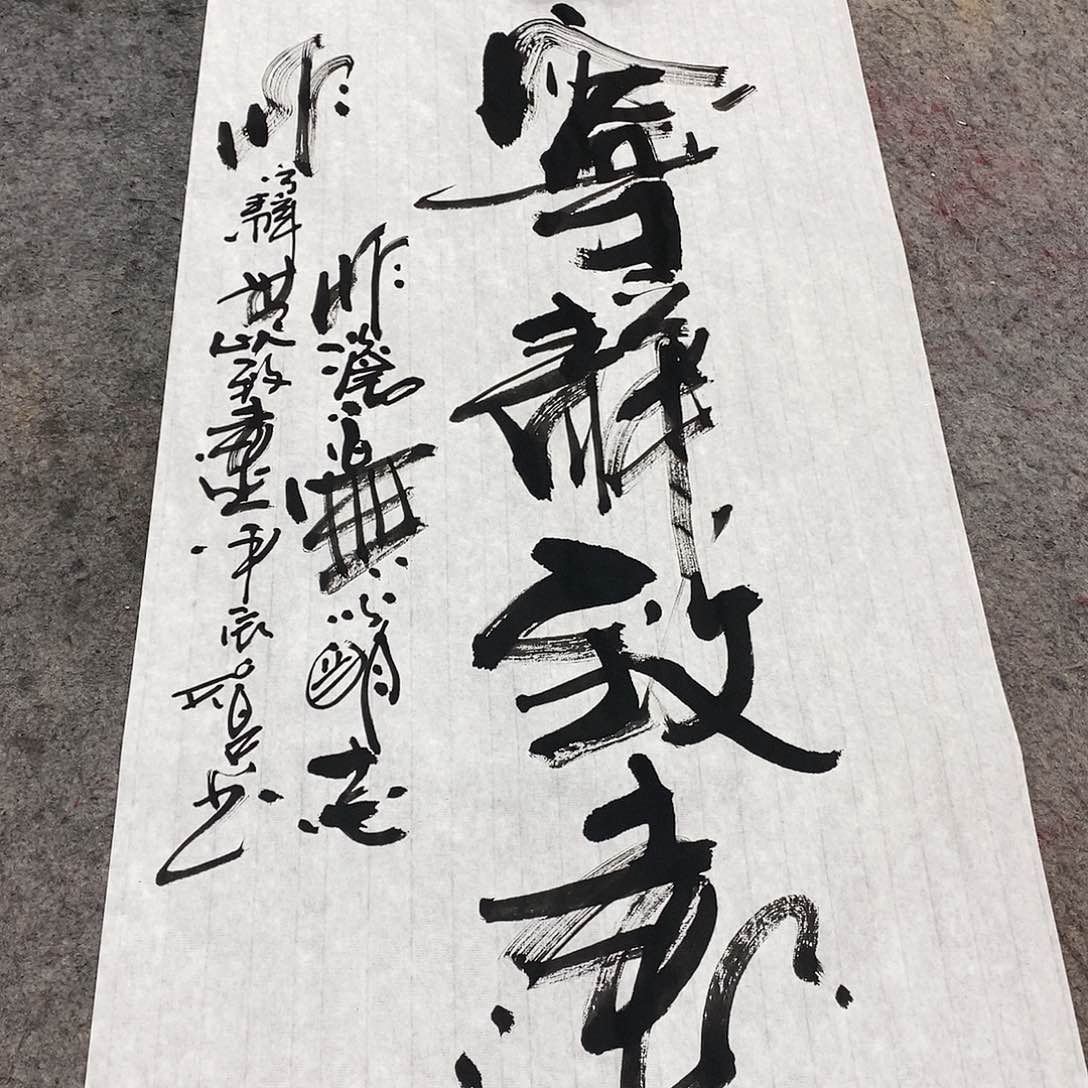 寧靜致遠
非澹泊無以明志
非寧靜無以致遠
甲辰
书